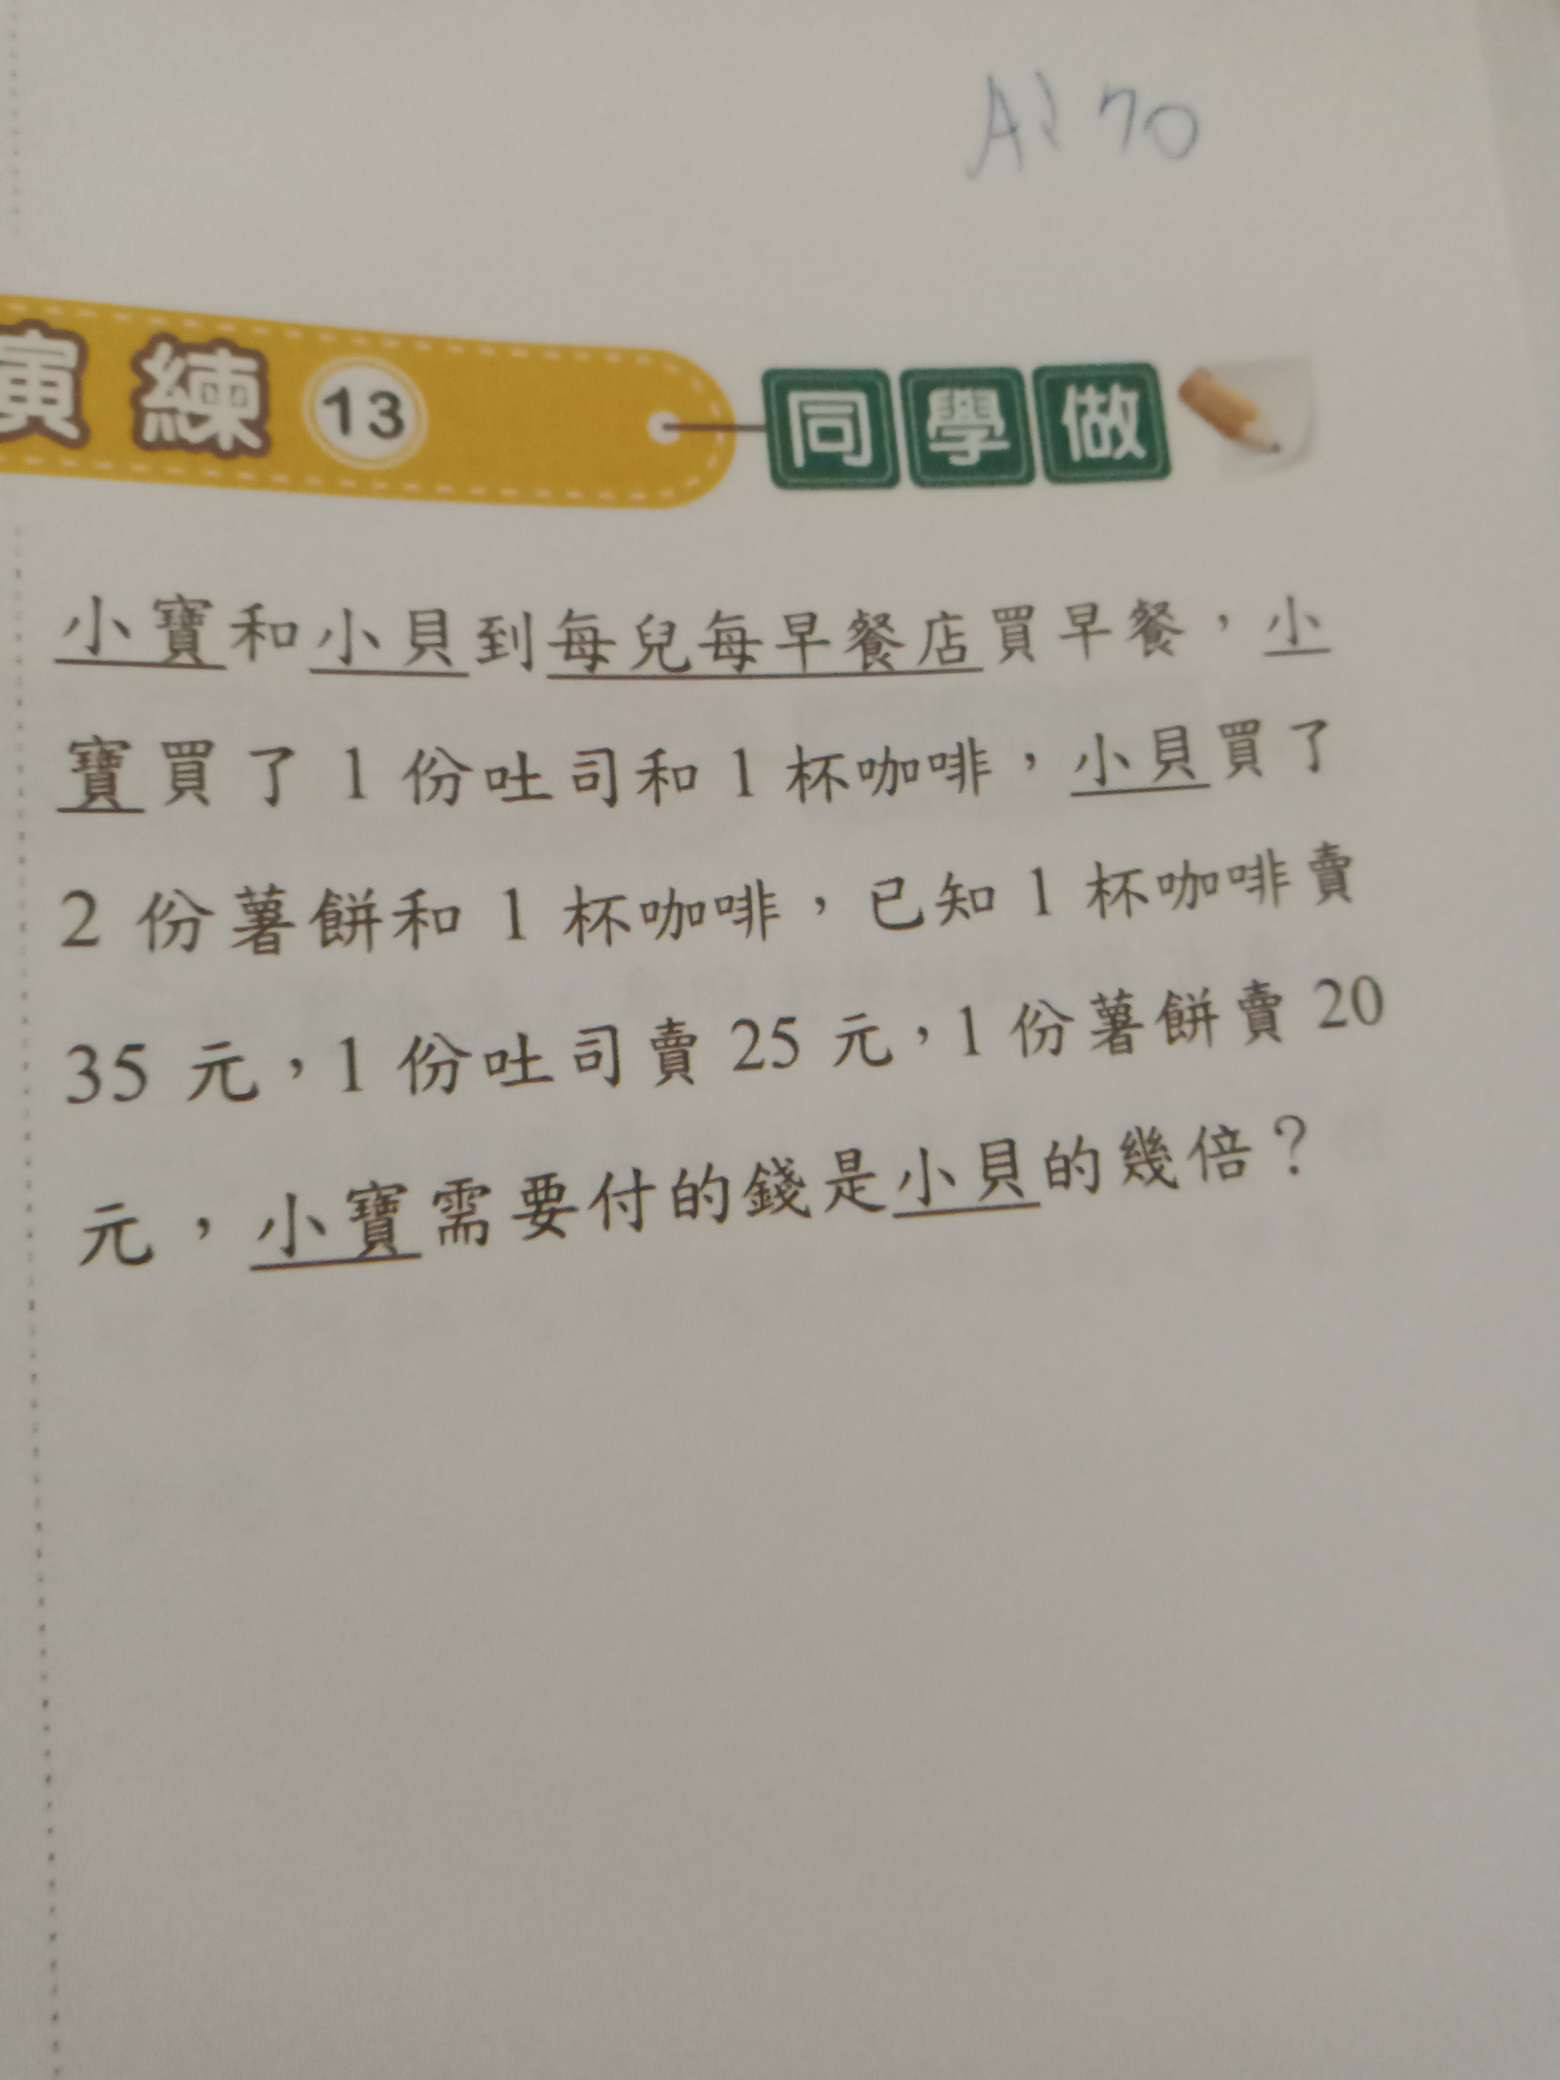 A: 70
演練 13 同學做
小寶和小貝到每兒每早餐店買早餐，小
寶買了 1 份吐司和 1 杯咖啡，小貝買了
2 份薯餅和 1 杯咖啡，已知 1 杯咖啡賣
35 元，1 份吐司賣 25 元，1 份薯餅賣 20
元，小寶需要付的錢是小貝的幾倍？